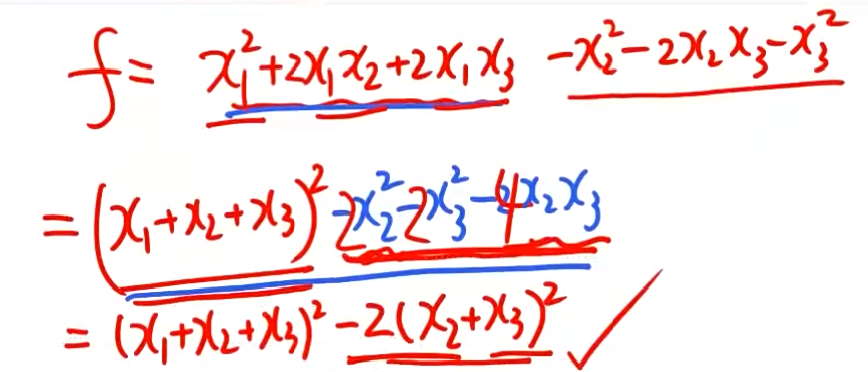 f = x₁² + 2x₁x₂ + 2x₁x₃ - x₂² - 2x₂x₃ - x₃²
= (x₁ + x₂ + x₃)² - 2x₂² - 2x₃² - 4x₂x₃
= (x₁ + x₂ + x₃)² - 2(x₂ + x₃)² ✓